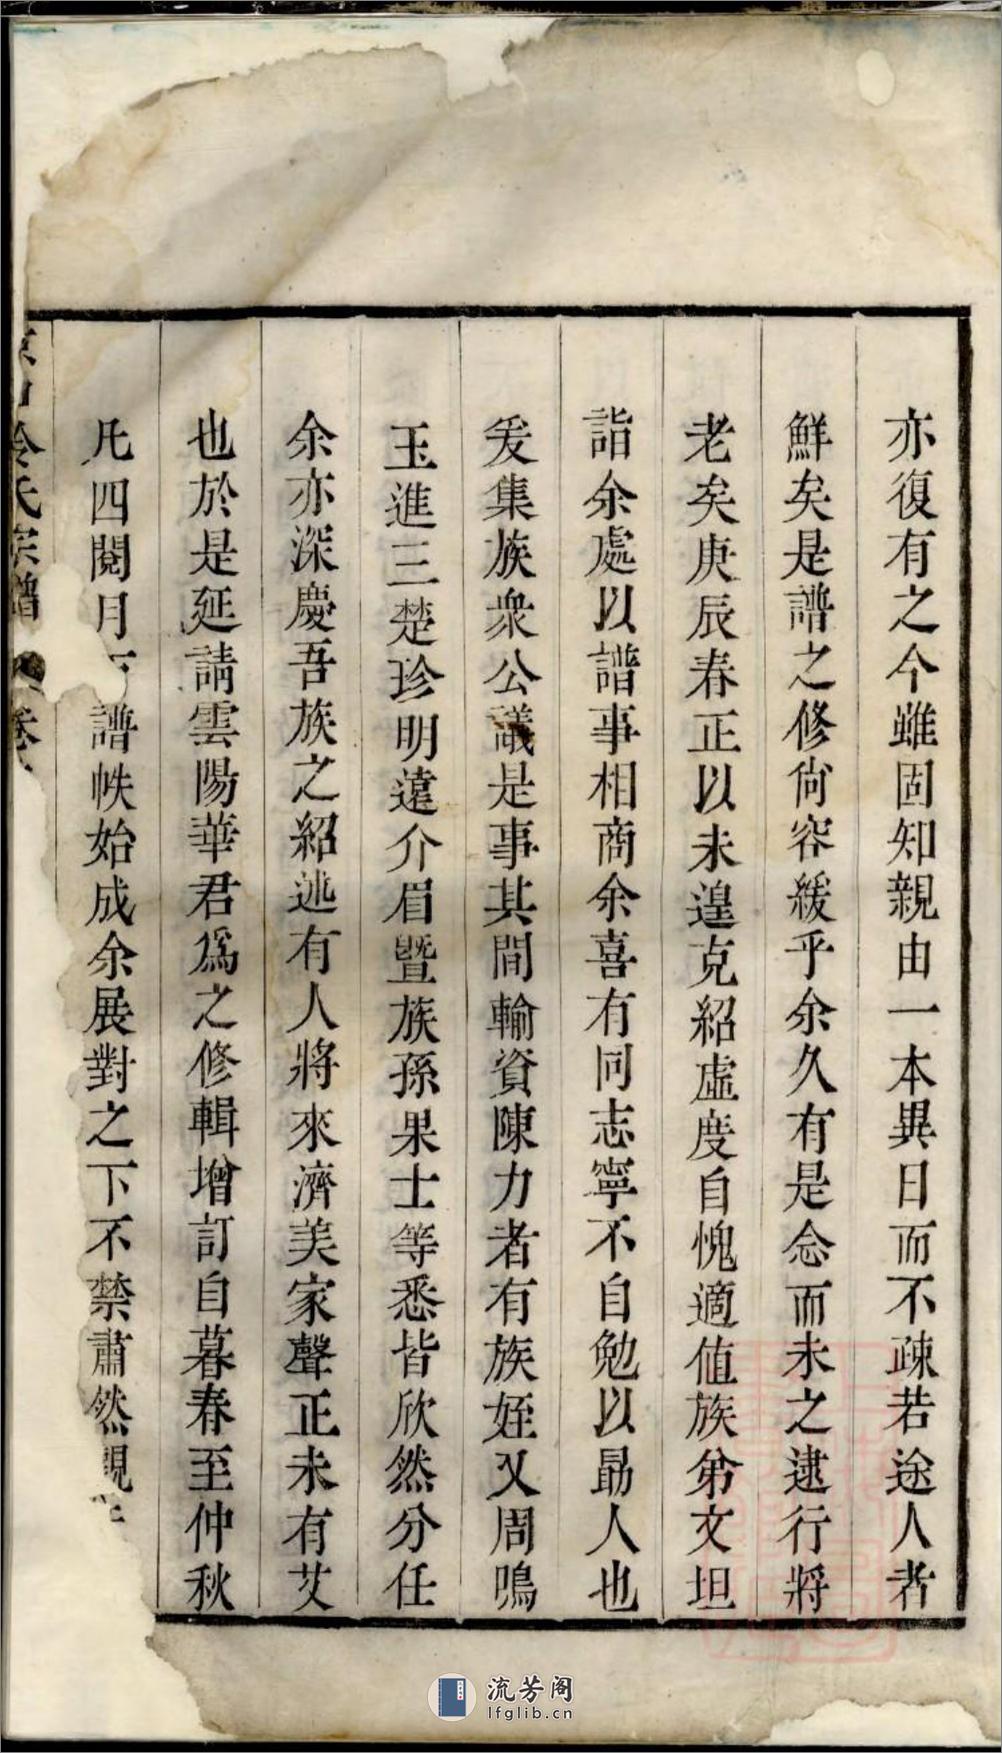 亦復有之今雖固知親由一本異日而不疎若途人者
鮮矣是譜之修尙容緩乎余久有是念而未之逮行將
老矣庚辰春正以未遑克紹虛度自愧適値族弟文坦
詣余處以譜事相商余喜有同志寧不自勉以勗人也
爰集族衆公議是事其間輸資陳力者有族姪又周鳴
玉進三楚珍明遠介眉曁族孫果士等悉皆欣然分任
余亦深慶吾族之紹述有人將來濟美家聲正未有艾
也於是延請雲陽華君爲之修輯增訂自暮春至仲秋
凡四閱月譜帙始成余展對之下不禁肅然觀
氏宗譜 卷
流芳阁
lfglib.cn